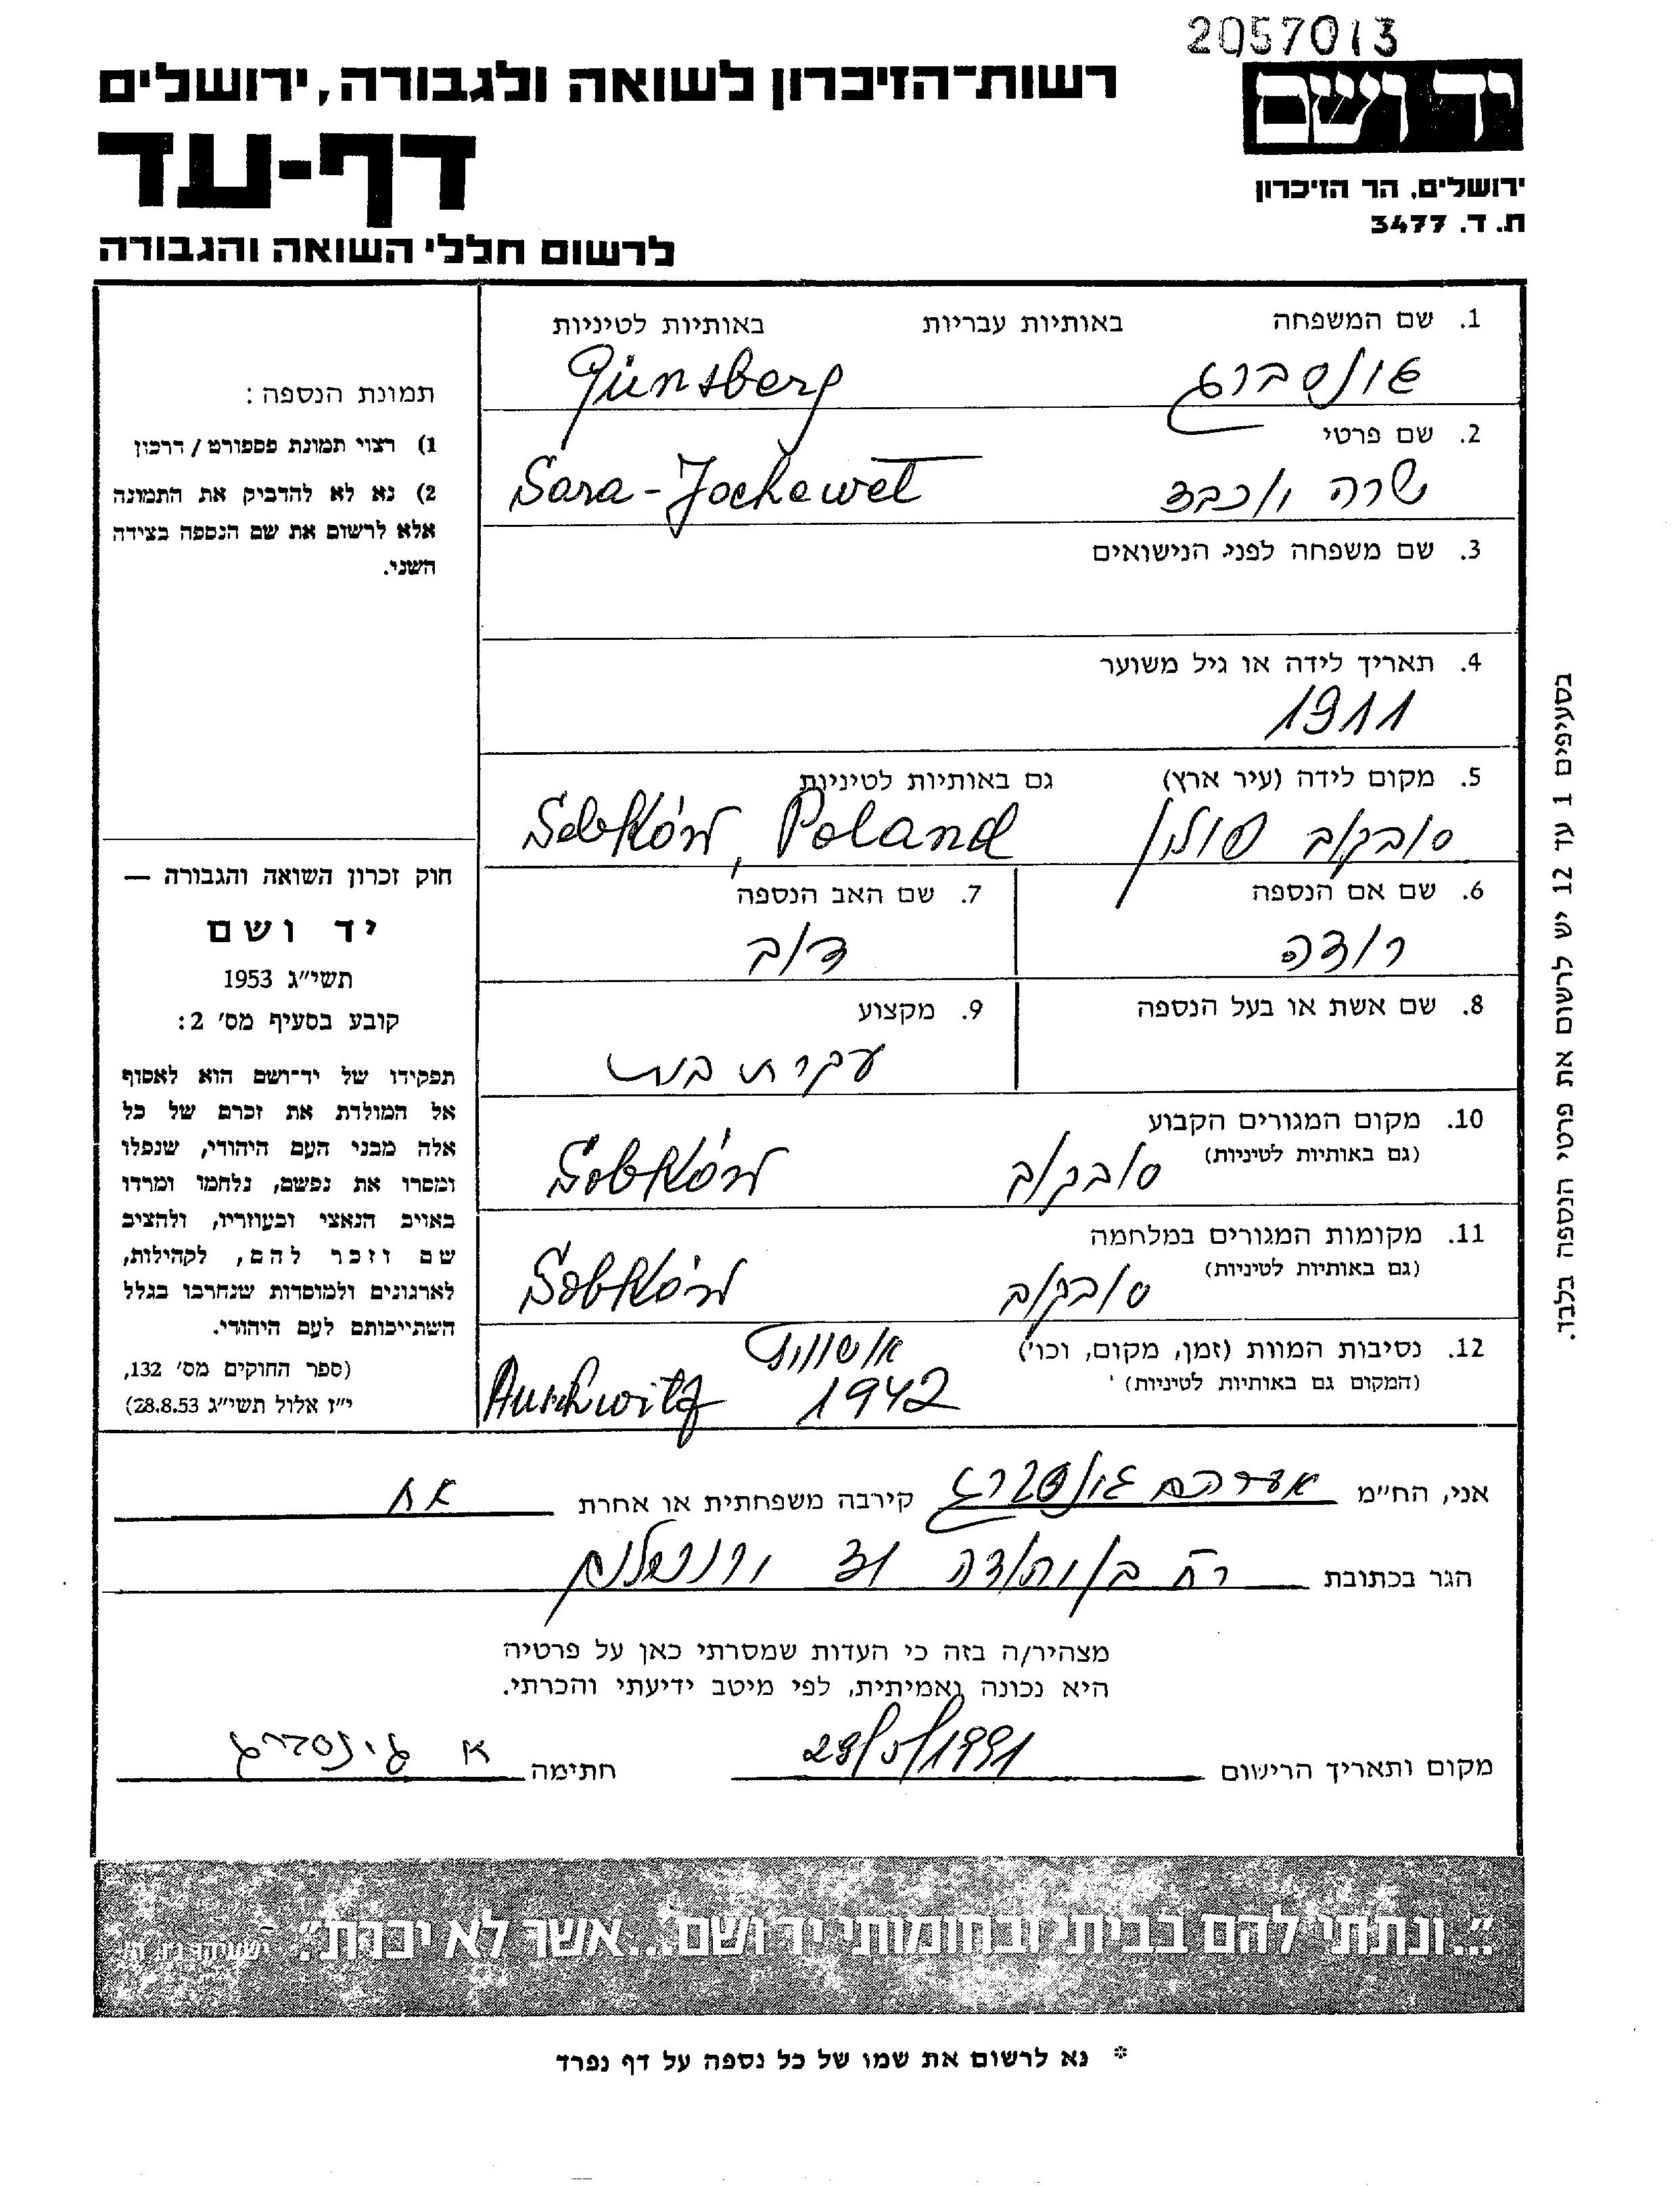 2057013
יד ושם
רשות־הזיכרון לשואה ולגבורה, ירושלים
דף-עד
ירושלים, הר הזיכרון
ת. ד. 3477
לרשום חללי השואה והגבורה
1. שם המשפחה באותיות עבריות באותיות לטיניות
Günsberg
2. שם פרטי
שרה יוכבד Sara-Jochewet
3. שם משפחה לפני הנישואים
4. תאריך לידה או גיל משוער
1911
5. מקום לידה (עיר ארץ) גם באותיות לטיניות
סובקוב פולין Sobków, Poland
6. שם אם הנספה 7. שם האב הנספה
רוזה דוב
8. שם אשת או בעל הנספה 9. מקצוע
עקרת בית
10. מקום המגורים הקבוע
(גם באותיות לטיניות)
סובקוב Sobków
11. מקומות המגורים במלחמה
(גם באותיות לטיניות)
סובקוב Sobków
12. נסיבות המוות (זמן, מקום, וכו')
(המקום גם באותיות לטיניות)
1942 Auschwitz
תמונת הנספה:
1) רצוי תמונת פספורט / דרכון
2) נא לא להדביק את התמונה
אלא לרשום את שם הנספה בצידה
השני.
חוק זכרון השואה והגבורה —
יד ושם
תשי״ג 1953
קובע בסעיף מס׳ 2:
תפקידו של יד־ושם הוא לאסוף
אל המולדת את זכרם של כל
אלה מבני העם היהודי, שנפלו
ומסרו את נפשם, נלחמו ומרדו
באויב הנאצי ובעוזריו, ולהציב
שם וזכר להם, לקהילות,
לארגונים ולמוסדות שנחרבו בגלל
השתייכותם לעם היהודי.
(ספר החוקים מס׳ 132,
י״ז אלול תשי״ג 28.8.53)
בסעיפים 1 עד 12 יש לרשום את פרטי הנספה בלבד.
אני, הח״מ אברהם גינסברג קירבה משפחתית או אחרת אח
הגר בכתובת רח בן יהודה ירושלים
מצהיר/ה בזה כי העדות שמסרתי כאן על פרטיה
היא נכונה ואמיתית, לפי מיטב ידיעתי והכרתי.
מקום ותאריך הרישום 28/5/1991 חתימה א גינסברג
״...ונתתי להם בביתי ובחומותי יד ושם...אשר לא יכרת״. ישעיהו נ״ו, ה׳
* נא לרשום את שמו של כל נספה על דף נפרד